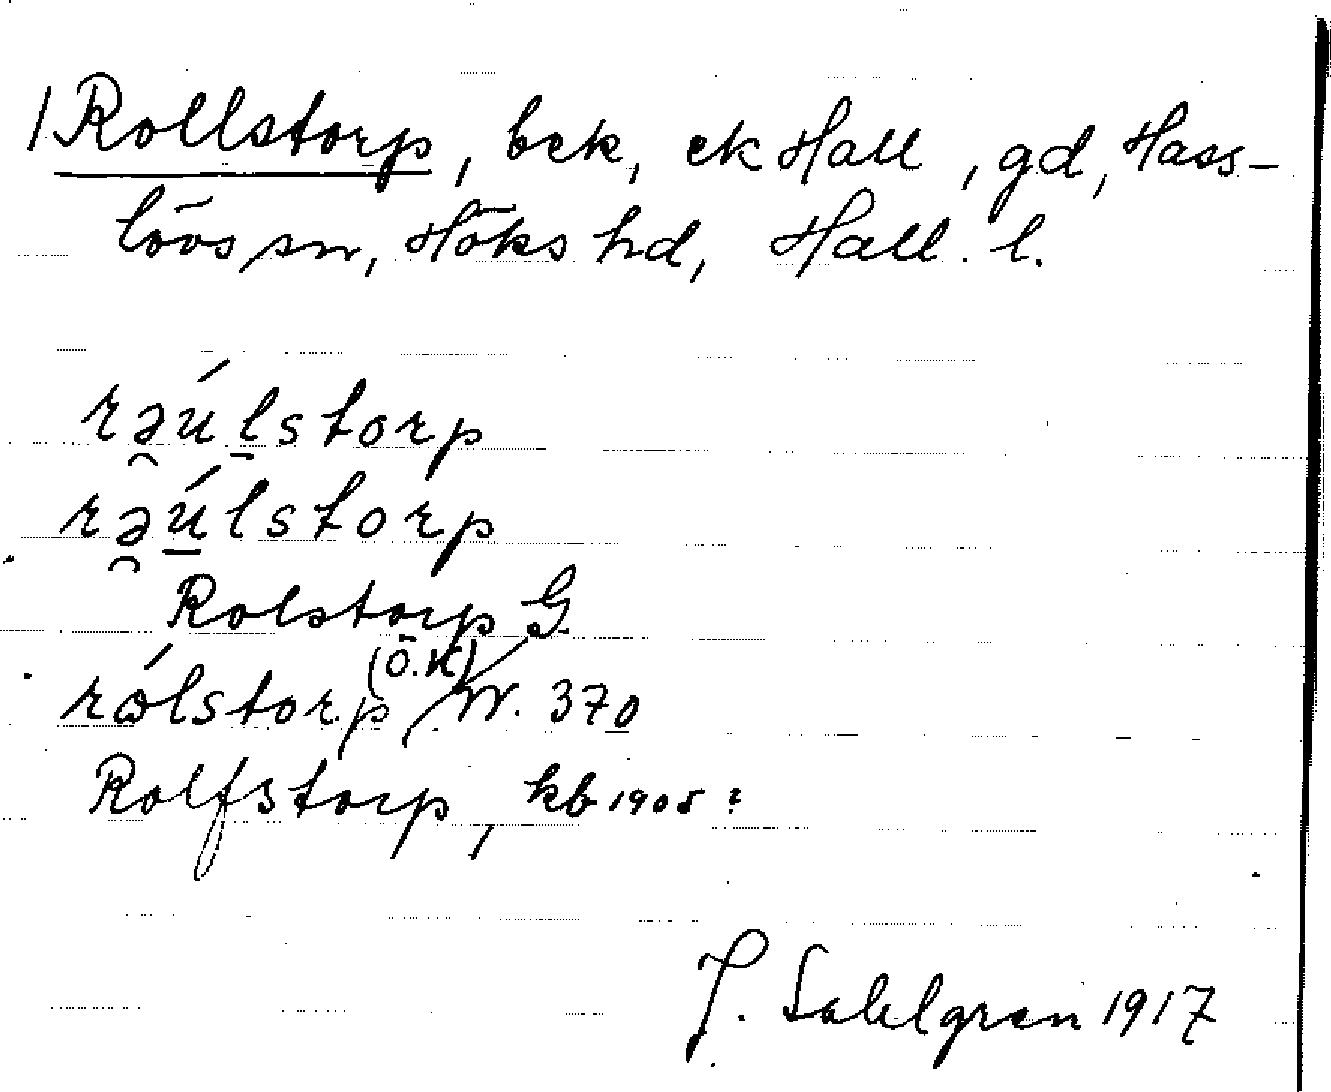 1 Rollstorp, bek, ek Hall, gd, Hass-
lövs sn, Höks hd, Hall. l.
rə̯úl̠storp
rə̯ú̠lstorp
Rolstorp G.
(Ö.K)
rólstorp, W. 370
Rolfstorp, kb 1905:
J. Sahlgren 1917